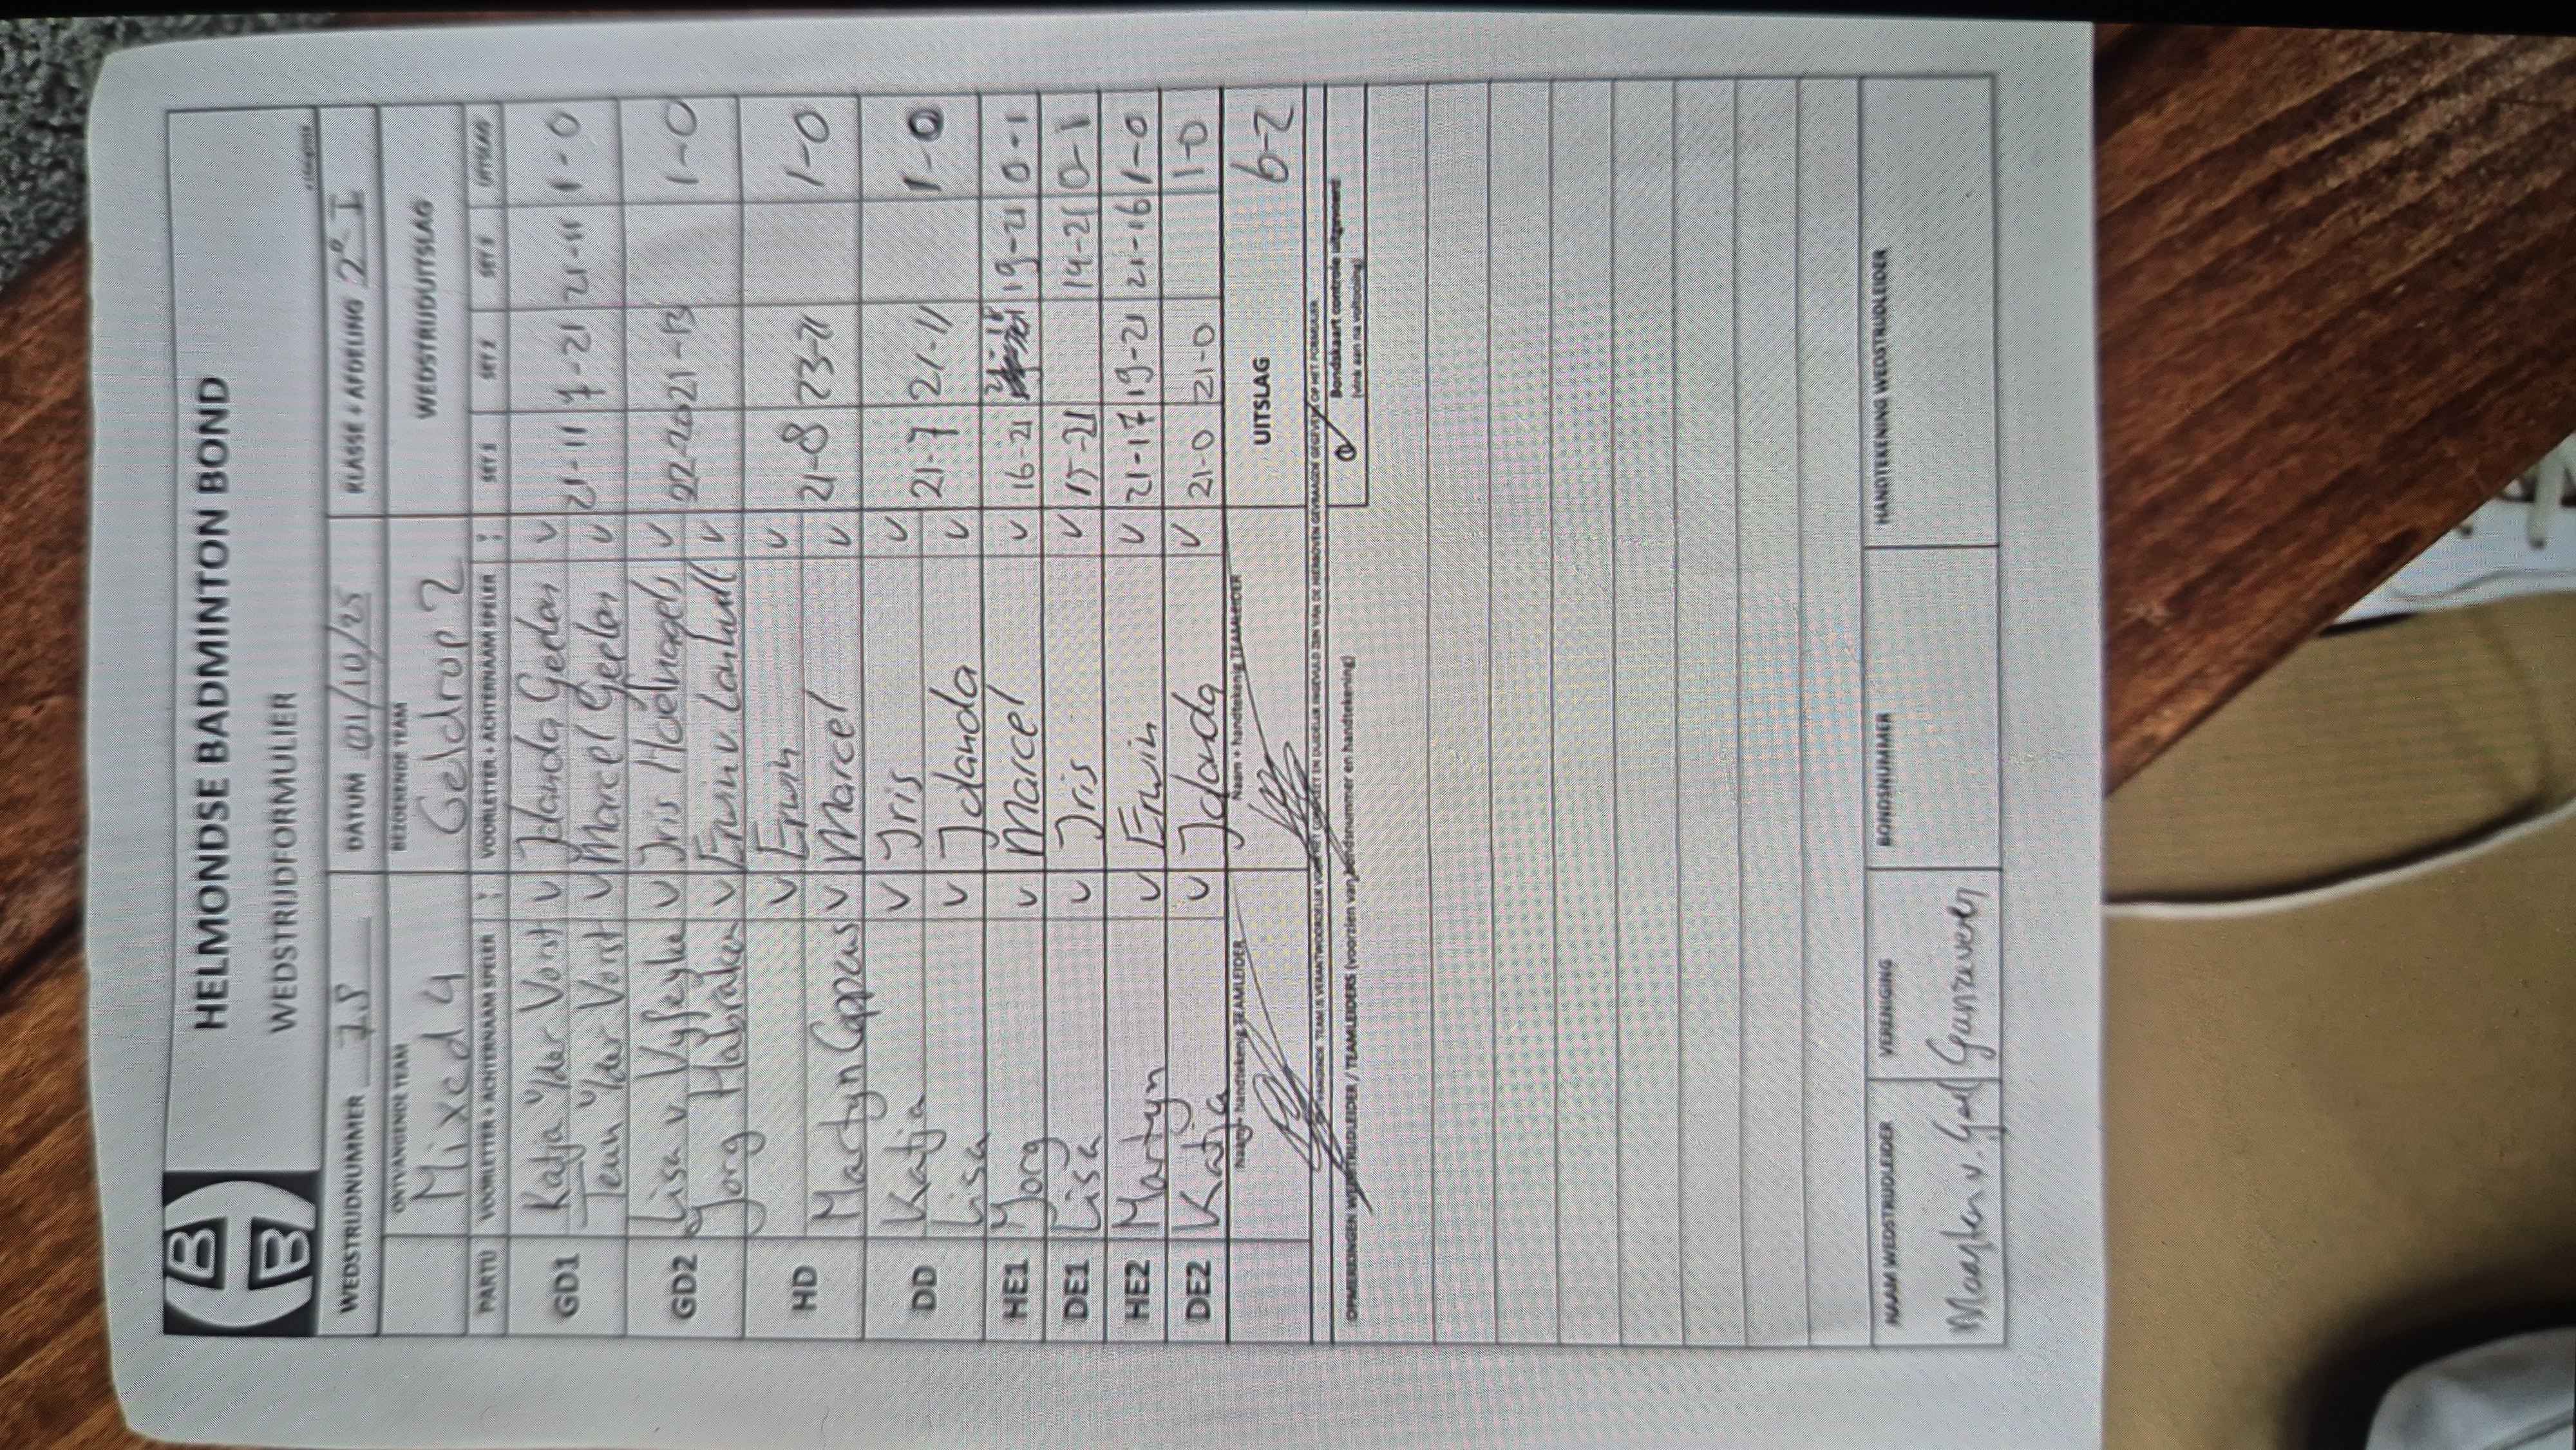 HELMONDSE BADMINTON BOND
WEDSTRIJDFORMULIER
WEDSTRIJDNUMMER DATUM 01/10/25 KLASSE + AFDELING 2e I
ONTVANGENDE TEAM BEZOEKENDE TEAM WEDSTRIJDUITSLAG
Mixed 4 Geldrop 2
PARTIJ VOORLETTER + ACHTERNAAM SPELER : VOORLETTER + ACHTERNAAM SPELER : SET 1 SET 2 SET 3 UITSLAG
GD1 Katja v/der Vorst v Jolanda Geplan v 21-11 7-21 21-11 1-0
Teun v/der Vorst v Marcel Geplan v
GD2 Lisa v Vyfeyke v Iris Hoefnagels v 22-20 21-13 1-0
Jorg Habraken v Erwin v. v
HD v Erwin v 21-8 23-21 1-0
Martyn Coppens v Marcel v
DD Katja v Iris v 21-7 21-11 1-0
Lisa v Jolanda v
HE1 Yorg v Marcel v 16-21 21-18 19-21 0-1
DE1 Lisa v Iris v 15-21 14-21 0-1
HE2 Martyn v Erwin v 21-17 19-21 21-16 1-0
DE2 Katja v Jolanda v 21-0 21-0 1-0
Naam + handtekening TEAMLEIDER Naam + handtekening TEAMLEIDER UITSLAG 6-2
Bondskaart controle uitgevoerd
(vink aan na voltooiing)
OPMERKINGEN WEDSTRIJDLEIDER / TEAMLEIDERS (voorzien van bondsnummer en handtekening)
NAAM WEDSTRIJDLEIDER VERENIGING BONDSNUMMER HANDTEKENING WEDSTRIJDLEIDER
Maarten v.